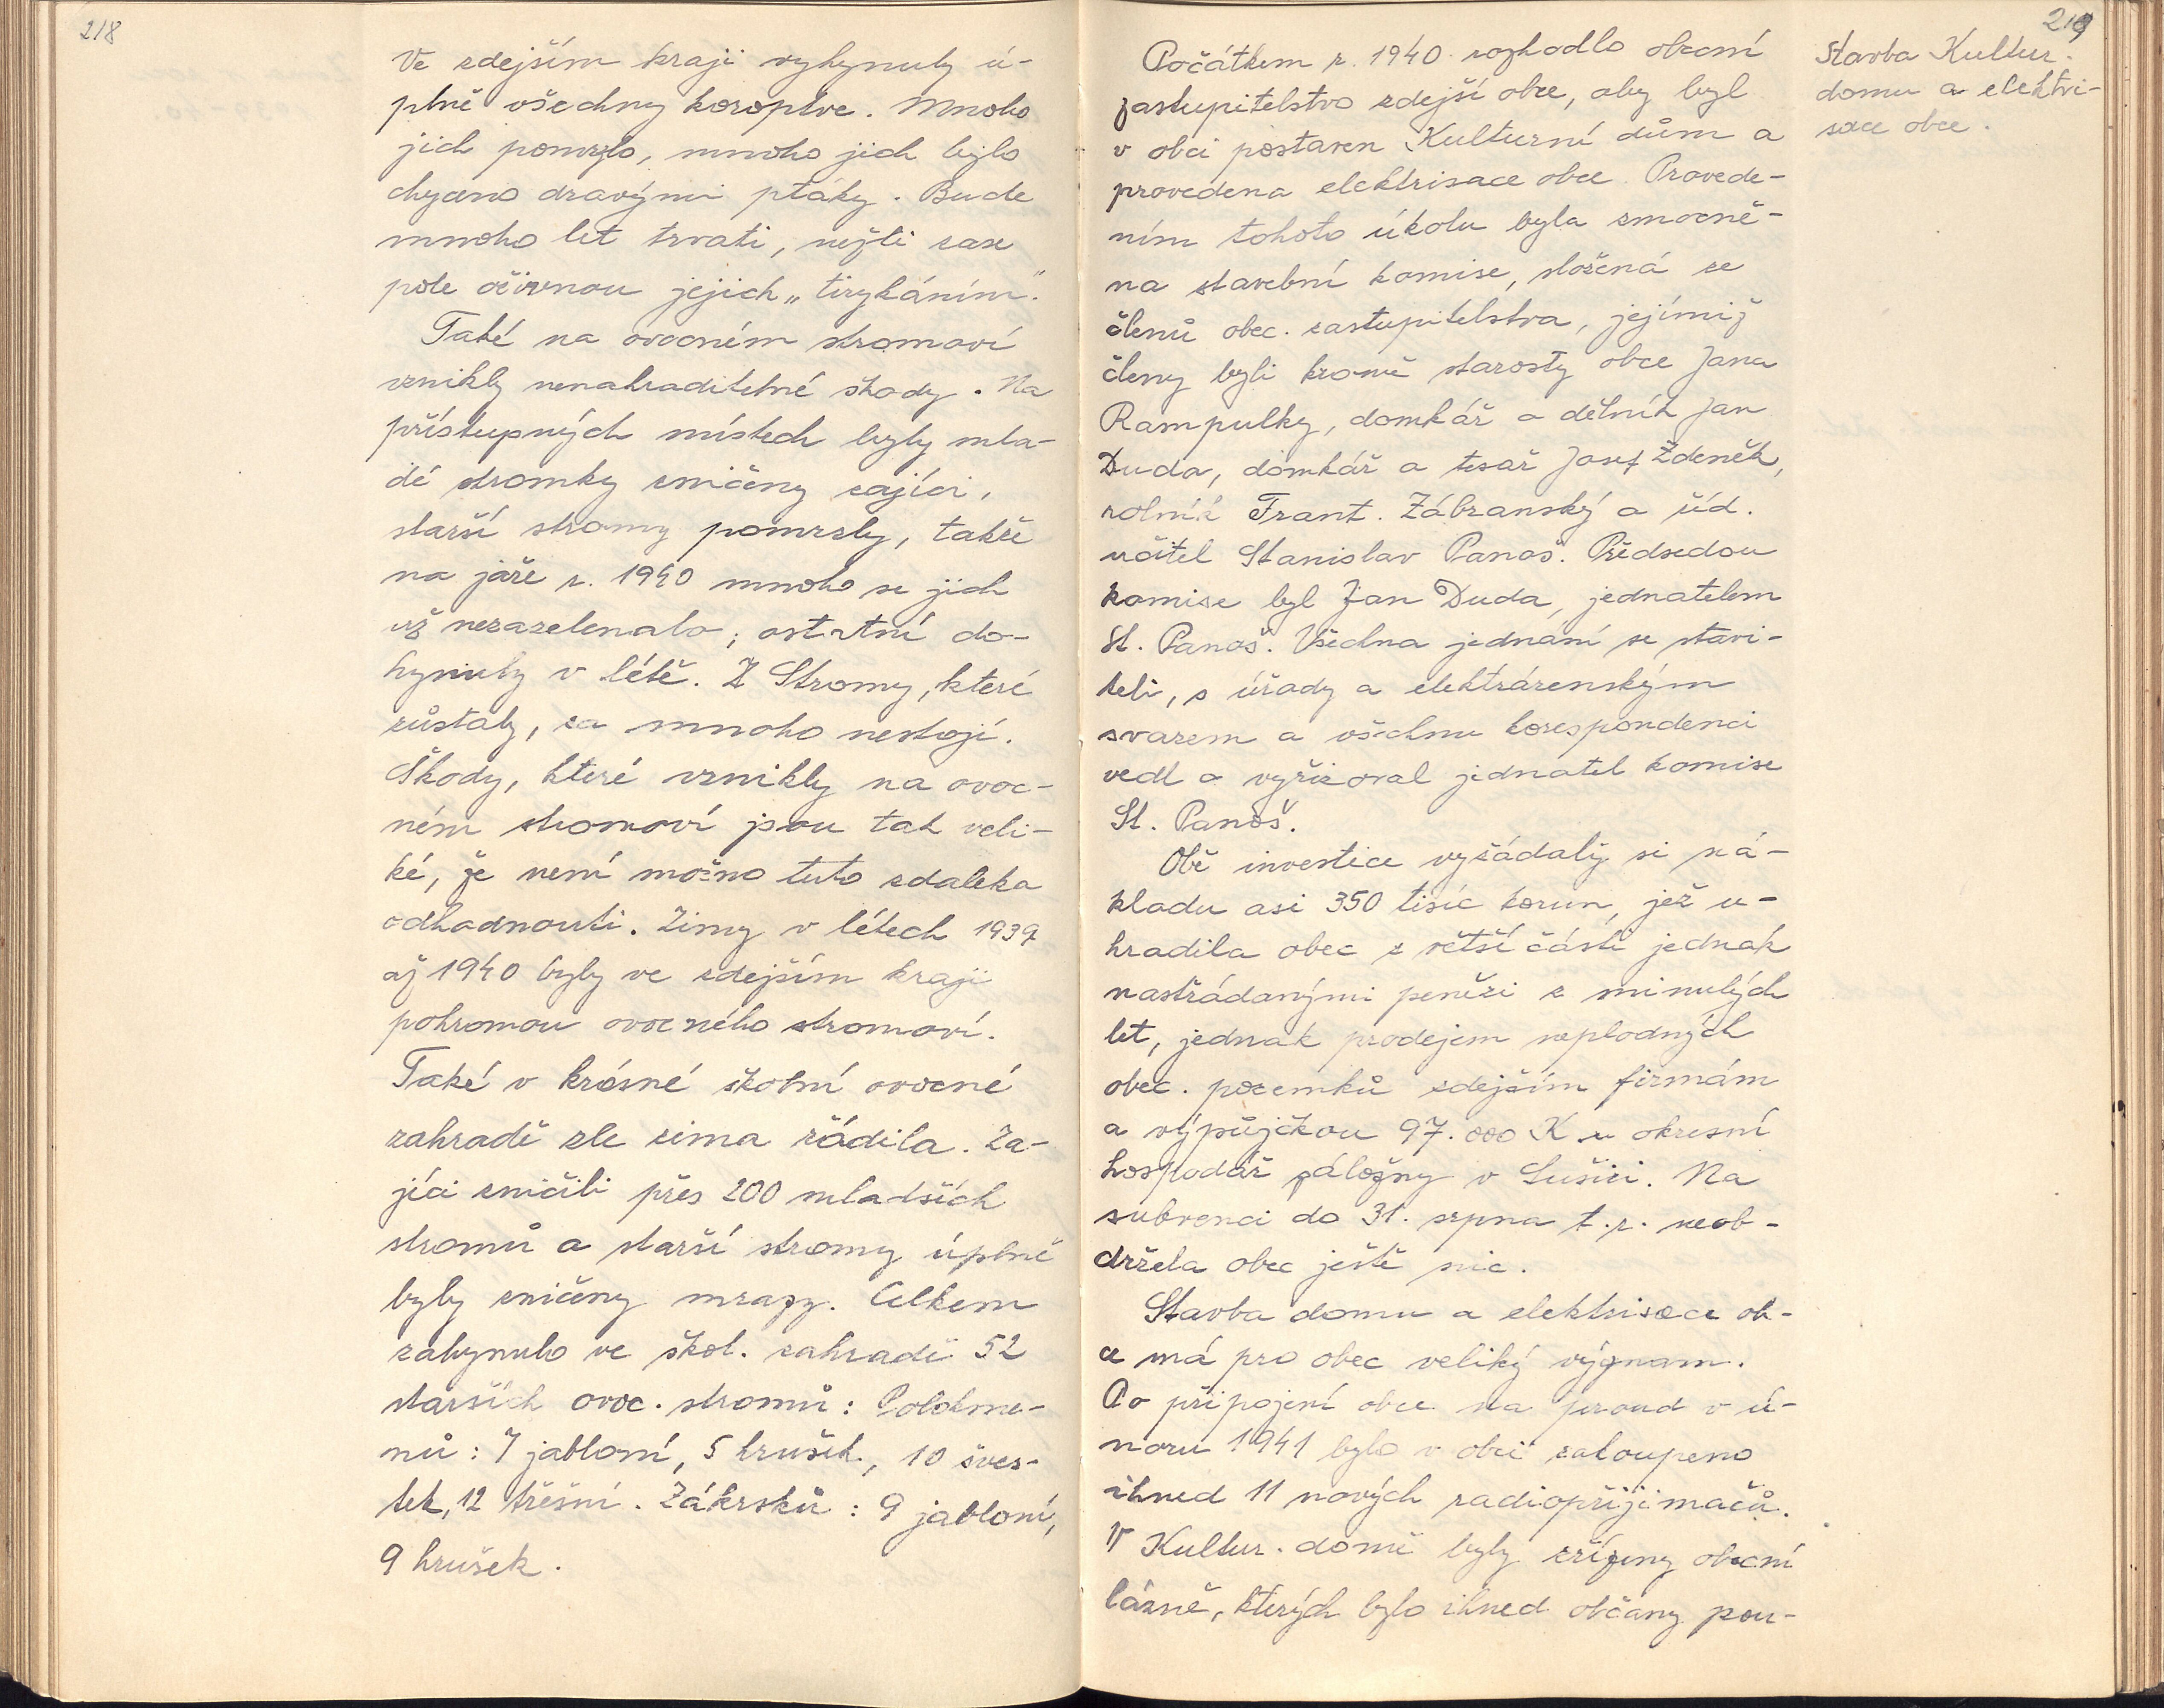 218
Ve zdejším kraji vyhynuly ú-
plně všechny koroptve. Mnoho
jich pomrzlo, mnoho jich bylo
chyceno dravými ptáky. Bude
mnoho let trvati, nežli zase
pole oživnou jejich „tirykáním".
Také na ovocném stromoví
vznikly nenahraditelné škody. Na
přístupných místech byly mla-
dé stromky zničeny zajíci,
starší stromy pomrzly, takže
na jaře r. 1940 mnoho se jich
už nezazelenalo; ostatní do-
hynuly v létě. Z Stromy, které
zůstaly, za mnoho nestojí.
Škody, které vznikly na ovoc-
ném stromoví jsou tak veli-
ké, že není možno tuto zdaleka
odhadnouti. Zimy v létech 1939
až 1940 byly ve zdejším kraji
pohromou ovocného stromoví.
Také v krásné školní ovocné
zahradě zle zima řádila. Za-
jíci zničili přes 200 mladších
stromů a starší stromy úplně
byly zničeny mrazy. Celkem
zahynulo ve škol. zahradě 52
starších ovoc. stromů: Polokme-
nů: 7 jabloní, 5 hrušek, 10 šves-
tek, 12 třešní. Zákrsků: 9 jabloní,
9 hrušek.
219
Stavba Kultur.
domu a elektri-
sace obce.
Počátkem r. 1940 rozhodlo obecní
zastupitelstvo zdejší obce, aby byl
v obci postaven Kulturní dům a
provedena elektrisace obce. Provede-
ním tohoto úkolu byla zmocně-
na stavební komise, složená ze
členů obec. zastupitelstva, jejímiž
členy byli kromě starosty obce Jana
Rampulky, domkář a dělník Jan
Duda, domkář a tesař Josef Zdeněk,
rolník Frant. Zábranský a říd.
učitel Stanislav Panoš. Předsedou
komise byl Jan Duda, jednatelem
St. Panoš. Všechna jednání se stavi-
teli, s úřady a elektrárenským
svazem a všechnu korespondenci
vedl a vyřizoval jednatel komise
St. Panoš.
Obě investice vyžádaly si ná-
kladu asi 350 tisíc korun, jež u-
hradila obec z větší části jednak
nastřádanými penězi z minulých
let, jednak prodejem neplodných
obec. pozemků zdejším firmám
a výpůjčkou 97.000 K u okresní
hospodář záložny v Sušici. Na
subvenci do 31. srpna t.r. neob-
držela obec ještě nic.
Stavba domu a elektrisace ob-
ce má pro obec veliký význam.
Po připojení obce na proud v ú-
noru 1941 bylo v obci zakoupeno
ihned 11 nových radiopřijimačů.
V Kultur. domě byly zřízeny obecní
lázně, kterých bylo ihned občany pou-